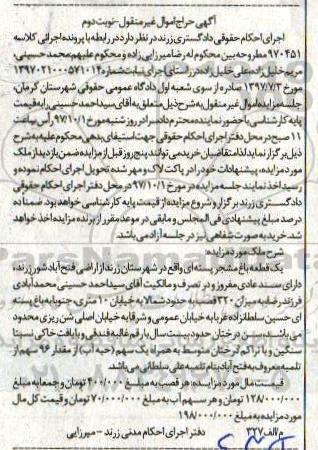 آگهی حراج اموال غیر منقول - نوبت دوم
اجرای احکام حقوقی دادگستری زرند در نظر دارد در رابطه با پرونده اجرائی کلاسه
۹۷۰۴۵۱ مطروحه بین محکوم له رضا میرزایی زاده و محکوم علیهم محمد حسینی،
مریم خلیل زاده، علی خلیل زاده در راستای اجرای نیابت شماره
مورخ ۱۳۹۷/۷/۳ صادره از سوی شعبه اول دادگاه عمومی حقوقی شهرستان کرمان،
جلسه مزایده اموال غیر منقول به شرح ذیل متعلق به آقای سیداحمد حسینی را به قیمت
پایه کارشناسی با حضور نماینده محترم دادسرا در روز شنبه مورخ ۹۷/۱۰/۱ رأس ساعت
۱۱ صبح در محل دفتر اجرای احکام حقوقی جهت استیفای بدهی محکوم علیه به شرح
ذیل برگزار نماید لذا متقاضیان خرید می توانند پنج روز قبل از مزایده ضمن بازدید از ملک
مورد مزایده، پیشنهادات خود را در پاکت لاک و مهر شده تحویل اجرای احکام نموده و
رسید اخذ نمایند جلسه مزایده در مورخ ۹۷/۱۰/۱ در محل دفتر اجرای احکام حقوقی
دادگستری زرند برگزار و شروع مزایده از قیمت پایه کارشناسی خواهد بود. ضمنا ده
درصد مبلغ پیشنهادی فی المجلس و مابقی در موعد مقرر از برنده مزایده اخذ خواهد
شد. خرید به صورت شفاهی نیز در جلسه آزاد می باشد.
شرح ملک مورد مزایده:
یک قطعه باغ مشجر پسته ای واقع در شهرستان زرند از اراضی فتح آباد شور زرند،
دارای سند عادی مفروز و در تصرف و مالکیت آقای سیداحمد حسینی محمدآبادی
فرزند رضا به میزان ۳۲۰ قصب به حدود شمالا به خیابان ۱۰ متری، جنوبا به باغ پسته
ای حسین سلطانزاده غربا به خیابان عمومی و شرقا به خیابان اصلی شن ریزی محدود
می باشد. سن درختان حدود بیست سال با رقم غالبه فندقی و بافت خاکی نسبتا
سنگین و با تراکم درختان متوسط به همراه یک سهم (حبه آب) از مقدار ۹۶ سهم از
تلمبه معروف به فتح آباد بنام تلمبه علی سلطانی می باشد.
قیمت مال مورد مزایده: هر قصب به مبلغ ۴۰۰/۰۰۰ تومان و جمعا به مبلغ
۱۲۸/۰۰۰/۰۰۰ تومان و هر سهم آب به مبلغ ۷۰/۰۰۰/۰۰۰ تومان و قیمت کل مال
مورد مزایده به مبلغ ۱۹۸/۰۰۰/۰۰۰
م/الف ۳۲۷ دفتر اجرای احکام مدنی زرند - میرزایی